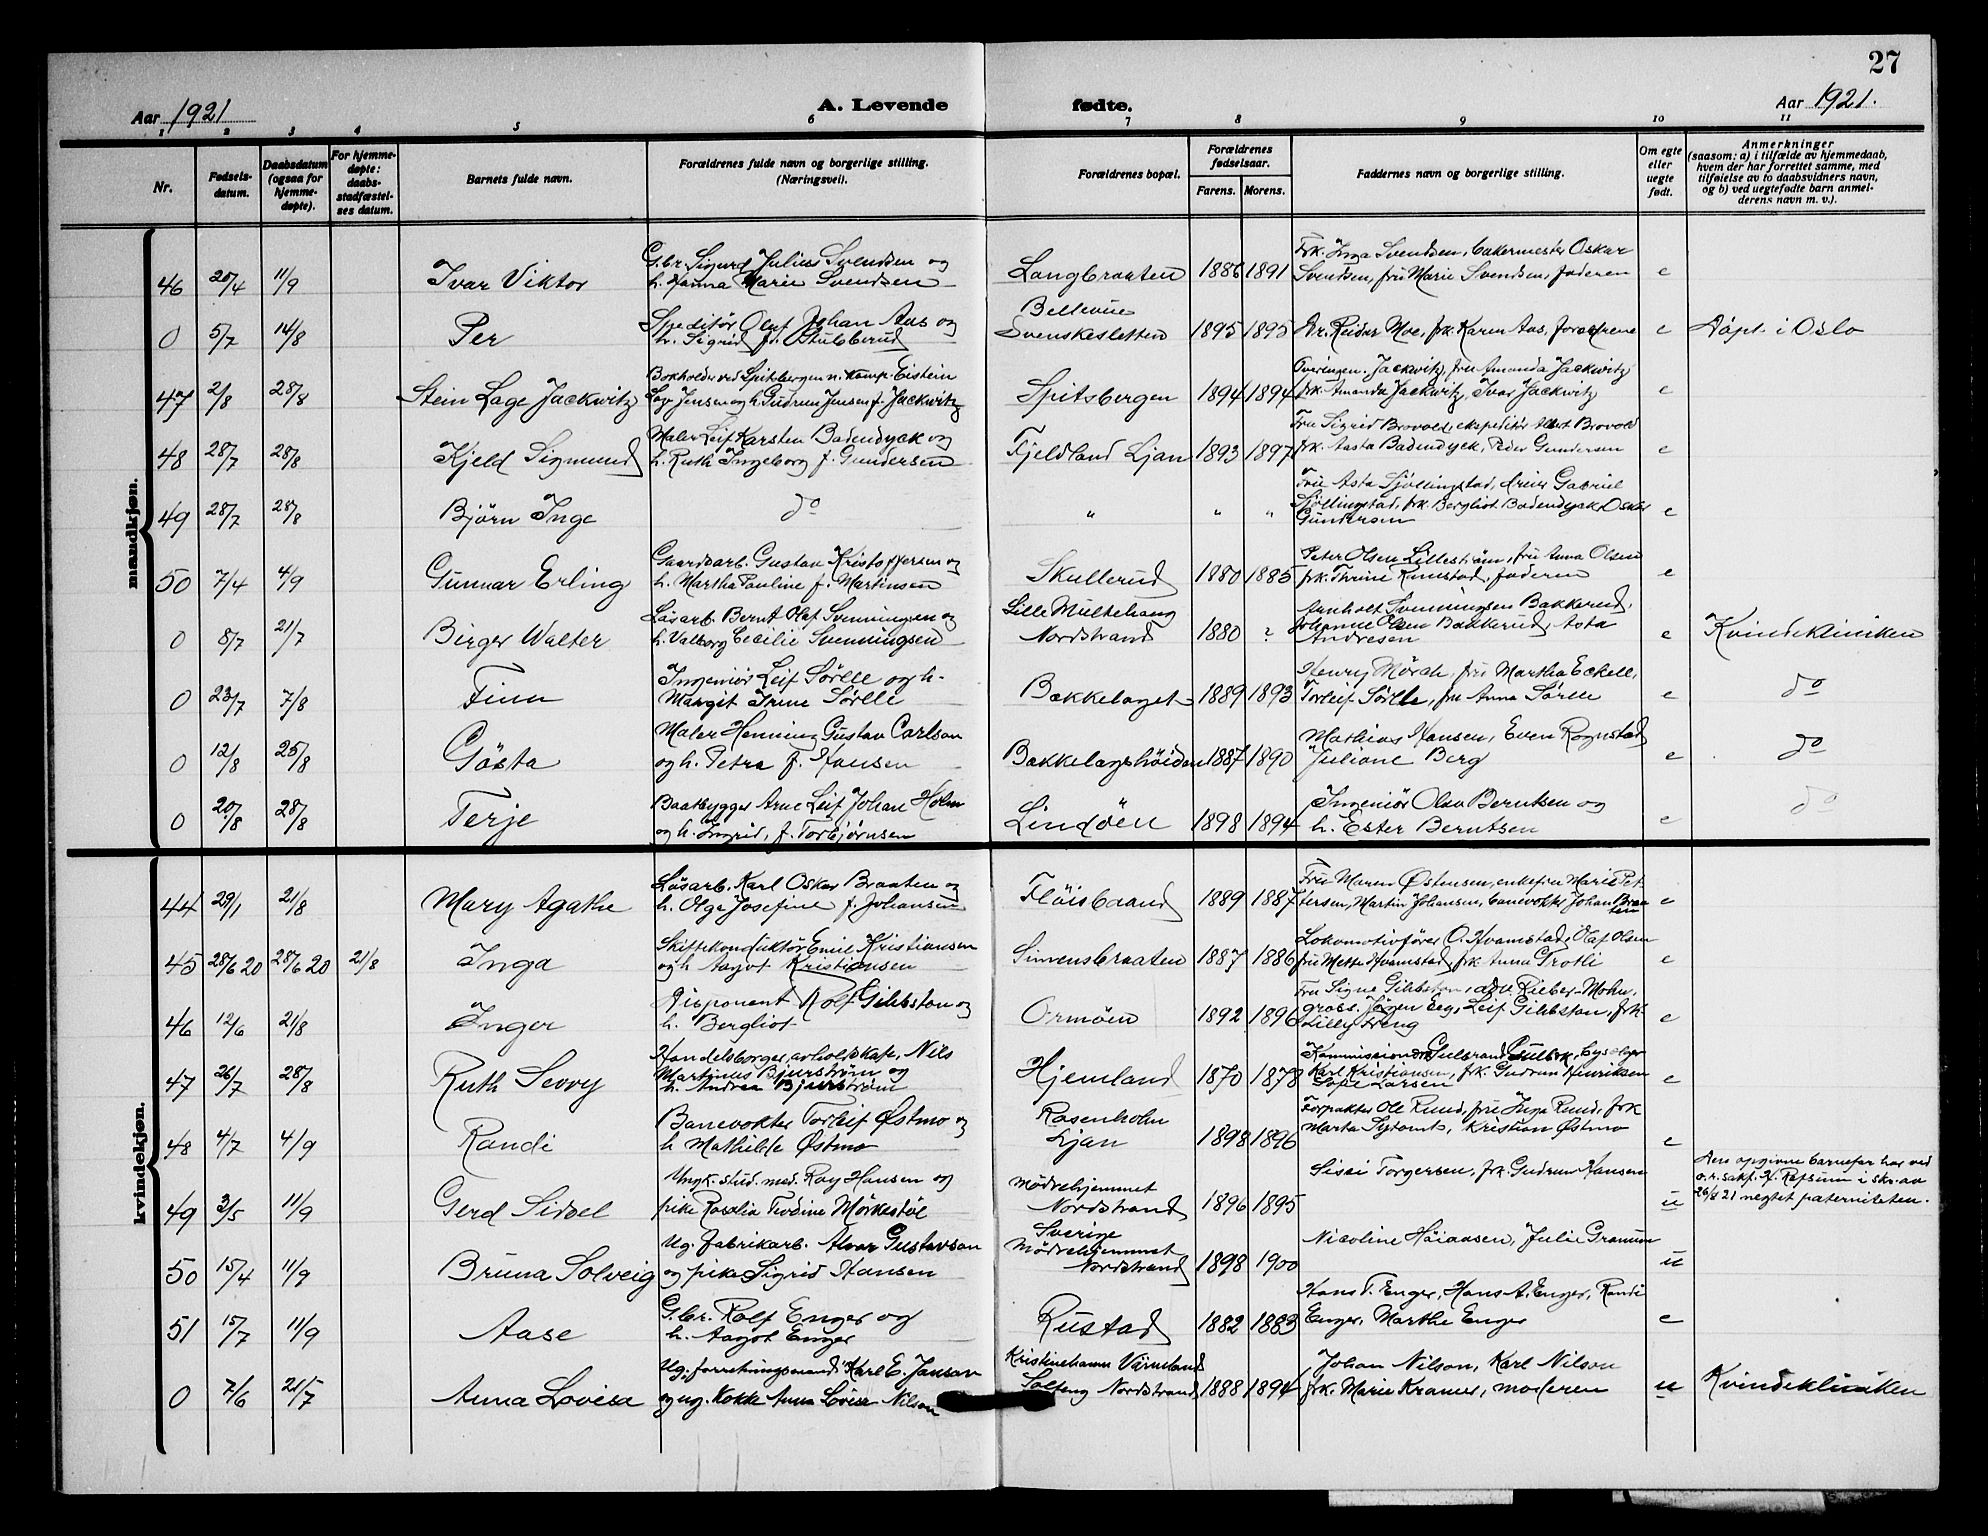 27
Aar 1921
A. Levende
fødte.
Aar 1921.
1 2 3 4 5 6 7 8 9 10 11
Nr.
Fødsels-
datum.
Daabsdatum
(ogsaa for
hjemme-
døpte).
For hjemme-
døpte:
daabs-
stadfæstel-
ses datum.
Barnets fulde navn.
Forældrenes fulde navn og borgerlige stilling.
(Næringsvei).
Forældrenes bopæl.
Forældrenes
fødselsaar.
Farens. Morens.
Faddernes navn og borgerlige stilling.
Om egte
eller
uegte
født.
Anmerkninger
(saasom: a) i tilfælde av hjemmedaab,
hvem der har forrettet samme, med
tilføielse av to daabsvidners navn,
og b) ved uegtefødte barn anmel-
derens navn m. v.).
mandkjøn.
46 20/4 11/9 Ivar Viktor
Gbr. Sigurd Julius Svendsen og
h. Hanna Marie Svendsen
Langbraaten 1886 1891
Frk. Inga Svendsen, bakermester Oskar
Svendsen, fru Marie Svendsen, faderen e
0 5/7 14/8 Per
Speditør Oluf Johan Aas og
h. Sigrid f. Stubberud
Bellevue
Svenskesletten 1895 1895
Dr. Reidar Moe, frk. Karen Aas, forældrene e Døpt i Oslo
47 2/8 28/8 Stein Lage Jackwitz
Bokholder ved Spitsbergen n. komp. Eistein
Lov Jensen og h. Gudrun Jensen f. Jackwitz
Spitsbergen 1894 1894
Overingen. Jackwitz, fru Amanda Jackwitz
frk. Amanda Jackwitz, Ivar Jackwitz e
48 28/7 28/8 Kjeld Sigmund
Maler Leif Karsten Badendyck og
h. Ruth Ingeborg f. Gundersen
Fjeldland Ljan 1893 1897
Fru Sigrid Brovold, ekspeditør Albert Brovold
frk. Aasta Badendyck, Peder Gundersen e
49 28/7 28/8 Bjørn Inge
do
" " "
Fru Asta Sjøllingstad, dreier Gabriel
Sjøllingstad, frk. Bergliot Badendyck, Oskar
Gundersen e
50 7/4 4/9 Gunnar Erling
Gaardsarb. Gustav Kristoffersen og
h. Martha Pauline f. Martinsen
Skullerud 1880 1885
Peter Olsen Lillestrøm, fru Anna Olsen
frk. Thrine Ramstad, faderen e
0 8/7 21/7 Birger Walter
Løsarb. Bernt Olaf Svenningsen og
h. Valborg Cecilie Svenningsen
Lille Multehaug
Nordstrand 1880 ?
Svenningsen Bakkerud,
Johanne Olsen Bakkerud, Asta
Andresen e Kvindeklinikken
0 23/7 7/8 Finn
Ingeniør Leif Sørlle og h.
Margit Irene Sørlle
Bækkelaget 1889 1893
Henry Mørch, fru Martha Eckell,
Torleif Sørlle, fru Anna Sørlle e do
0 12/8 25/8 Gösta
Maler Henning Gustav Carlson
og h. Petra f. Hansen
Bækkelagshøiden 1887 1890
Mathias Hansen, Even Rognstad
Juliane Berg e do
0 20/8 28/8 Terje
Baatbygger Arne Leif Johan Holm
og h. Ingrid, f. Torbjørnsen
Lindøen 1898 1894
Ingeniør Olav Berntsen og
h. Ester Berntsen e do
kvindekjøn.
44 29/1 21/8 Mary Agathe
Løsarb. Karl Oskar Braaten og
h. Olga Josefine f. Johansen
Fløisbaand 1889 1887
Fru Maren Østensen, enkefru Marie Pet-
tersen, Martin Johansen, banevokter Johan Braa
ten e
45 28/6 20 28/6 20 21/8 Inga
Skiftekonduktør Emil Kristiansen
og h. Aagot Kristiansen
Simensbraaten 1887 1886
Lokomotivfører O. Hvamstad, Olaf Olsen
fru Mette Hvamstad, frk Anna Grotli e
46 12/6 21/8 Inger
Disponent Rolf Gibbston og
h. Bergliot
Ormøen 1892 1896
Fru Signe Gibbston, adv. Rieber-Mohn,
gross. Jørgen Eeg, Leif Gibbston, frk.
Lilly Freng e
47 26/7 28/8 Ruth Sevvy
Handelsborger, avholdskafe, Nils
Martinus Bjurstrøm og
h. Andrea Bjurstrøm
Hjemland 1870 1878
Kommissionær Gulbrand Gulsvk, Cyselger
Karl Kristiansen, frk. Gudrun Henriksen
Sofie Larsen e
48 4/7 4/9 Randi
Banevokter Torleif Østmo og
h Mathilde Østmo
Rosenholm
Ljan 1898 1896
Forpakter Ole Rund, fru Inga Rund, frk
Marta Kristian Østmo e
49 3/5 11/9 Gerd Sidsel
Ungk. stud. med. Roy Hansen og
pike Rosalie Teodine Mørkestøl
Mødrehjemmet
Nordstrand 1896 1895
Sissi Torgersen, frk. Gudrun Hansen
u
Den opgivne barnefar har ved
o.r.sakf. H. Refsum i skr. av
26/8 21 negtet paterniteten.
50 15/4 11/9 Bruna Solveig
Ug. fabrikarb. Alvar Gustavson
og pike Sigrid Hansen
Sverige
Mødrehjemmet
Nordstrand 1898 1900
Nicoline Høiaasen, Julie Granum
u
51 15/7 11/9 Aase
Gbr. Rolf Enger og
h. Aagot Enger
Rustad 1882 1883
Hans T. Enger, Hans A. Enger, Randi
Enger, Marthe Enger e
0 7/6 21/7 Anna Lovisa
Ug. forretningsmand Karl E. Janson
og ug. kokke Anna Lovise Nilson
Kristinehamn Värmland
Solteng Nordstrand 1888 1894
Johan Nilson, Karl Nilson
frk. Marie Kramer, moderen u Kvindeklinikken